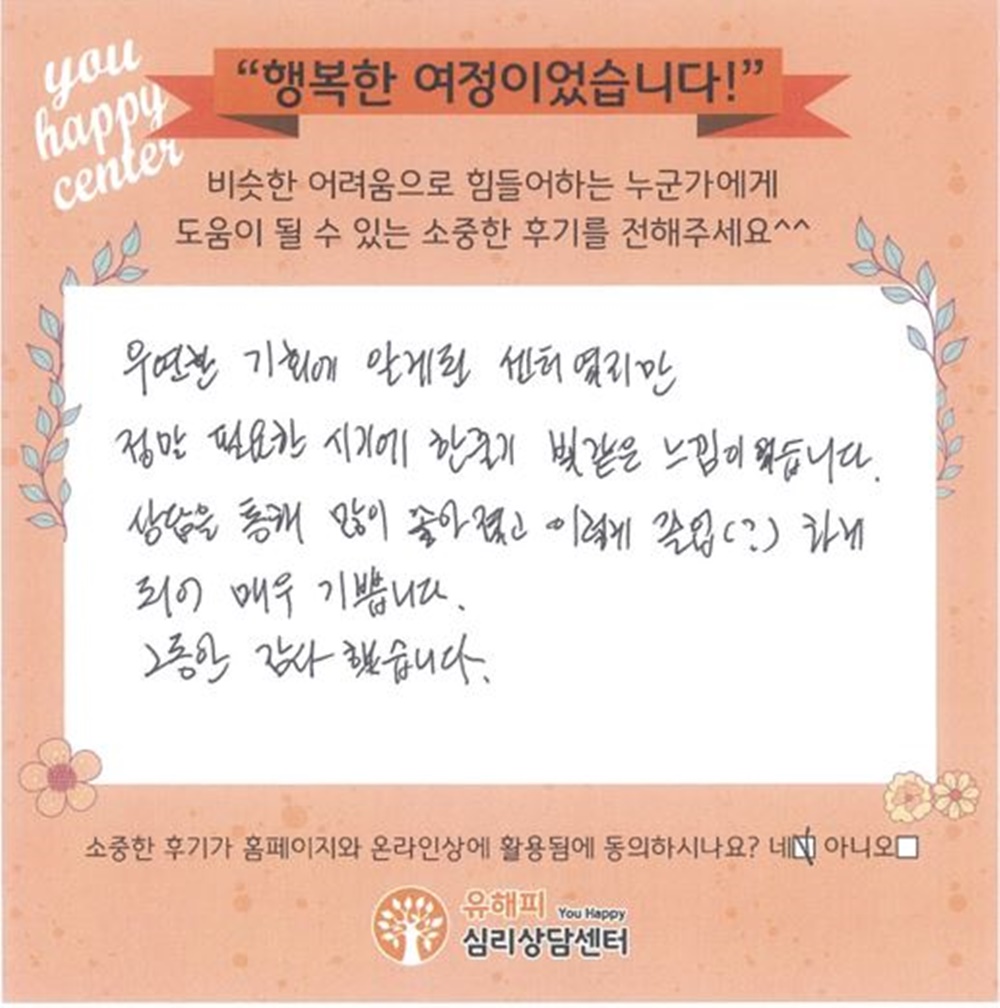 you
happy
center
“행복한 여정이었습니다!”
비슷한 어려움으로 힘들어하는 누군가에게
도움이 될 수 있는 소중한 후기를 전해주세요^^
우연한 기회에 알게된 센터였지만
정말 필요한 시기에 한줄기 빛같은 느낌이었습니다.
상담을 통해 많이 좋아졌고 이렇게 졸업(?) 하게
되어 매우 기쁩니다.
그동안 감사했습니다.
소중한 후기가 홈페이지와 온라인상에 활용됨에 동의하시나요? 네 아니오
유해피 You Happy
심리상담센터